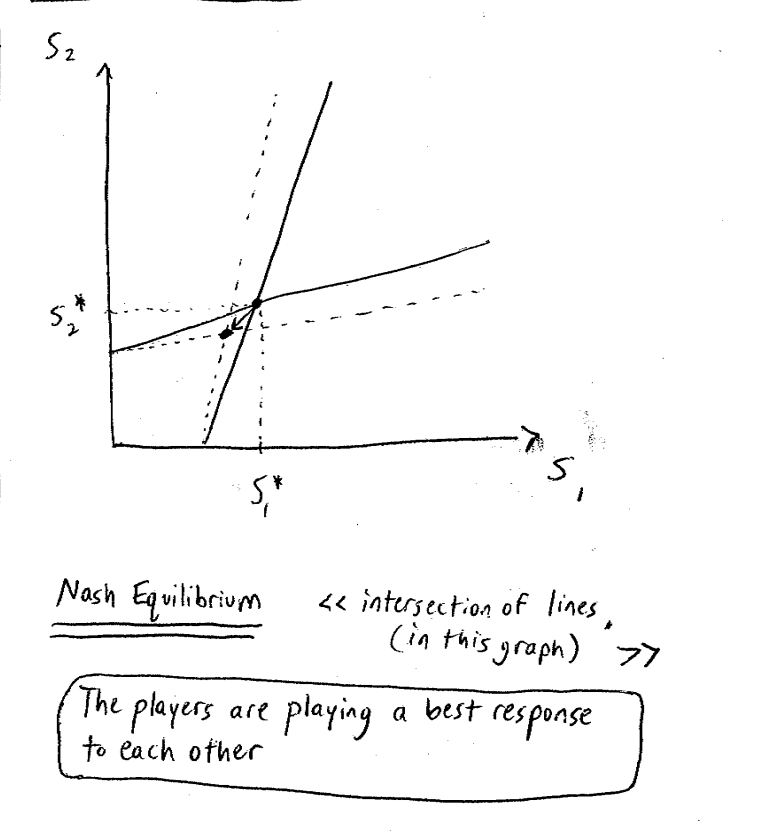 S₂
S₂*
S₁*
S₁
Nash Equilibrium << intersection of lines.
(in this graph) >>
The players are playing a best response
to each other